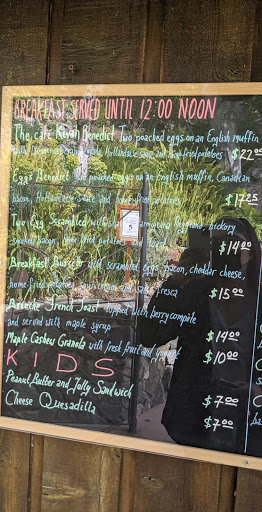 BREAKFAST SERVED UNTIL 12:00 NOON
The cafe Kevah Benedict Two poached eggs on an English muffin
Hollandaise sauce and home fried potatoes $22.00
Eggs Benedict Two poached eggs on an English muffin, Canadian
bacon, Hollandaise sauce and home fried potatoes $17.25
Two Egg Scrambled with hickory
smoked bacon, home fried potatoes and toast $14.00
Breakfast Burrito with scrambled eggs, bacon, cheddar cheese,
home fried potatoes, sour cream and salsa fresca $15.00
Brioche French Toast topped with berry compote
and served with maple syrup $14.00
Maple Cashew Granola with fresh fruit and yogurt $10.00
KIDS
Peanut Butter and Jelly Sandwich $7.00
Cheese Quesadilla $7.00